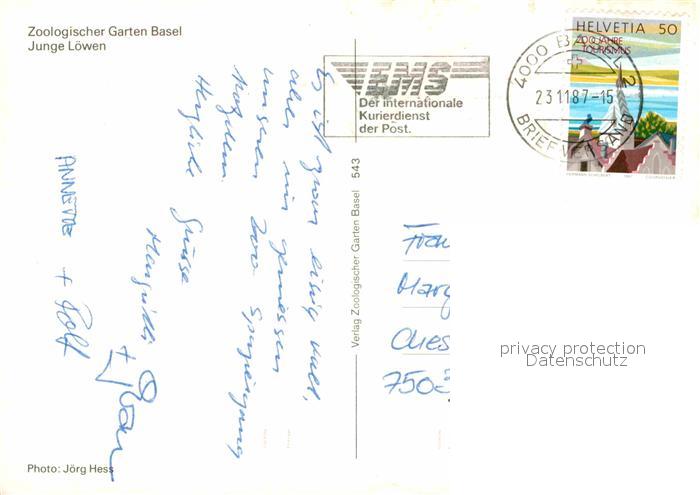 Zoologischer Garten Basel
Junge Löwen
Es ist zwar eisig kalt,
aber wir geniessen
unseren Zoo Spaziergang
trotzdem.
Herzliche Grüsse
Margrith
+
ANNETTE + Rolf
Photo: Jörg Hess
Verlag Zoologischer Garten Basel 543
EMS
Der internationale
Kurierdienst
der Post.
4000 BASEL 2
23.11.87-15
BRIEFVERSAND
HELVETIA 50
200 JAHRE
TOURISMUS
HERMANN SCHELBERT 1987 COURVOISIER
Frau
Marg
Ches
7503
privacy protection
Datenschutz